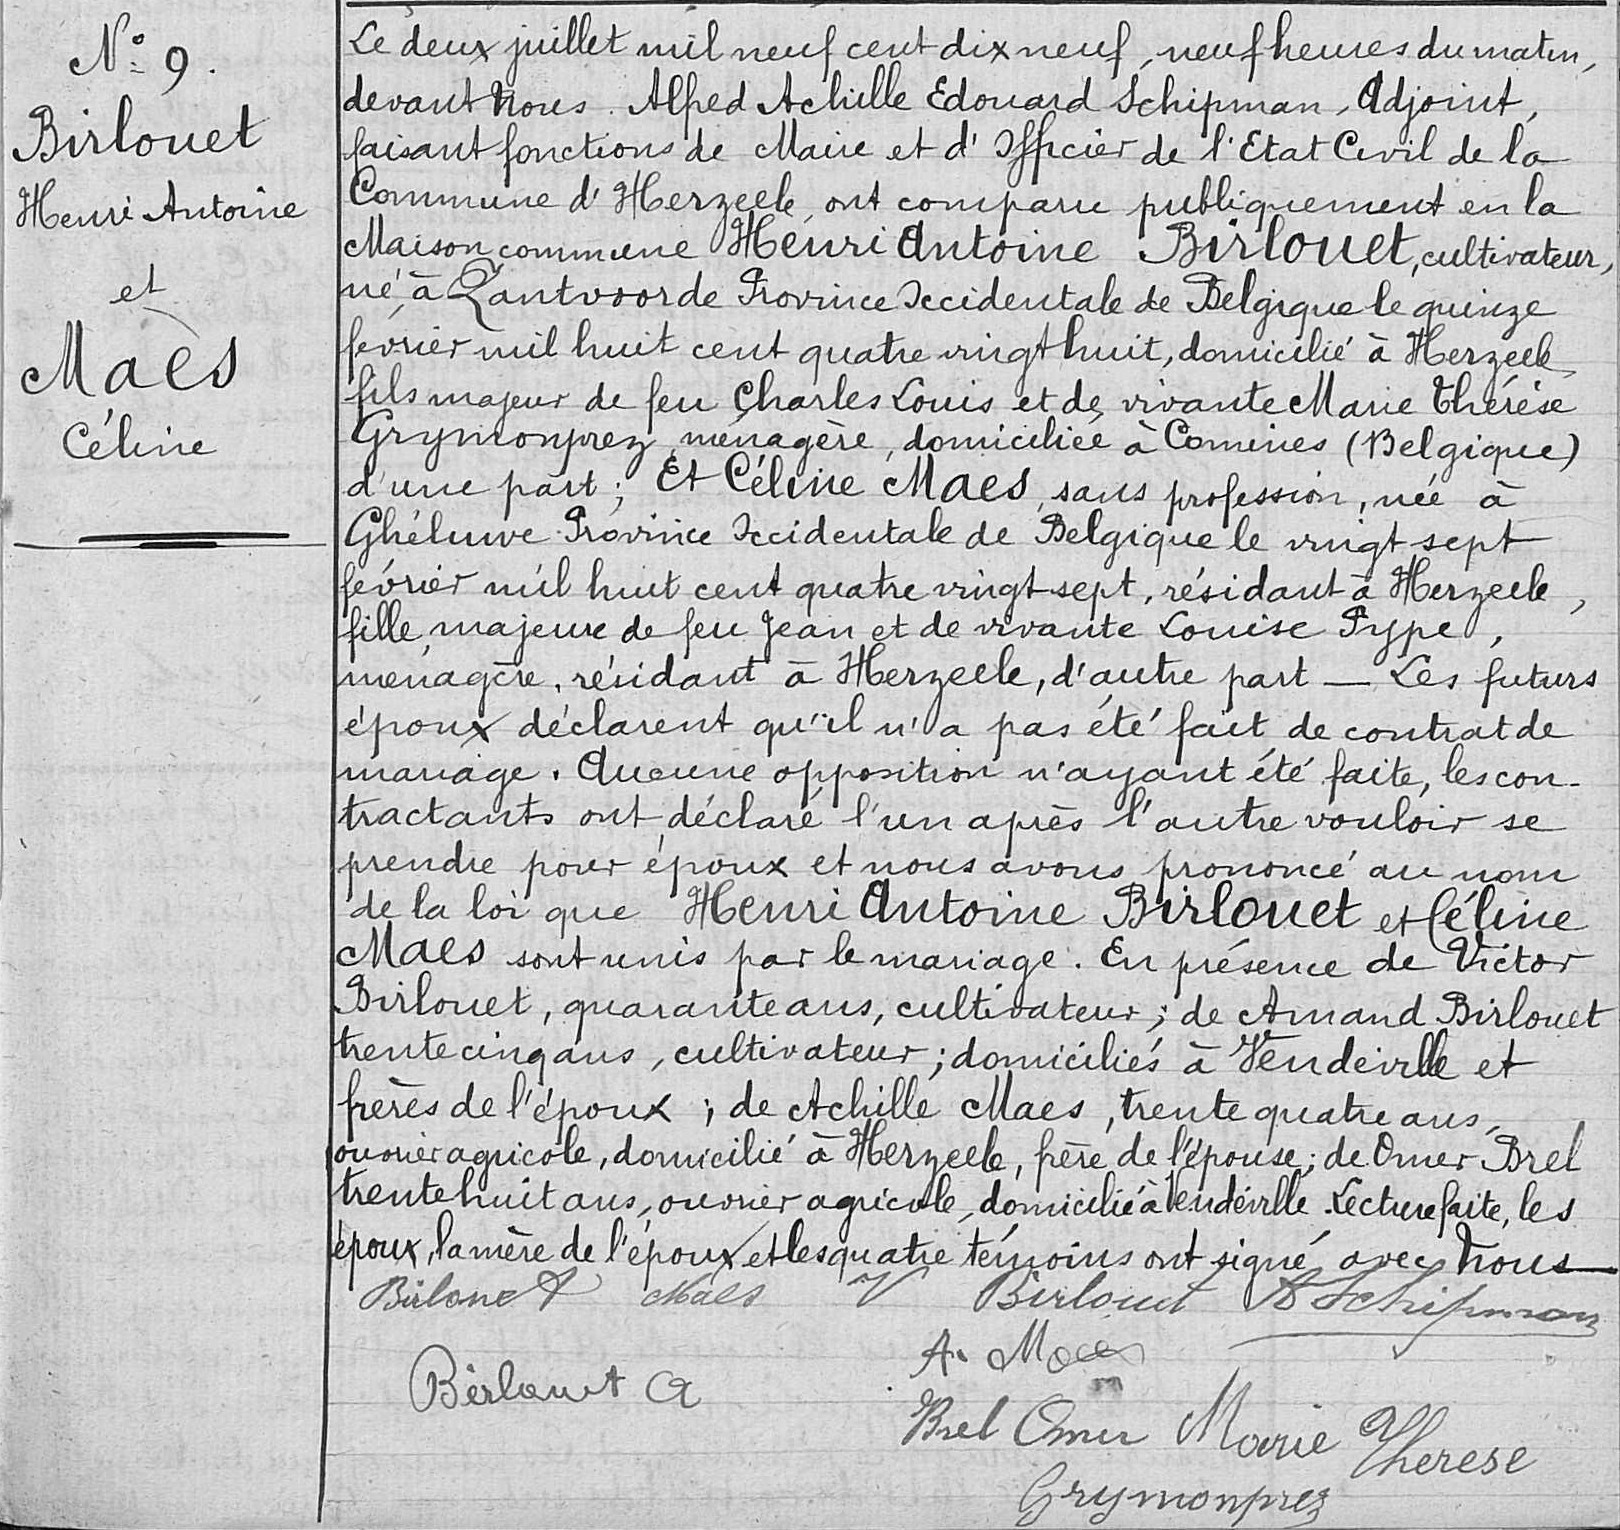 N° 9.
Birlouet
Henri Antoine
et
Maes
Céline
Le deux juillet mil neuf cent dix neuf, neuf heures du matin,
devant Nous Alfred Achille Edouard Schipman, Adjoint,
faisant fonctions de Maire et d'Officier de l'Etat Civil de la
Commune d'Herzeele, ont comparu publiquement en la
Maison commune Henri Antoine Birlouet, cultivateur,
né à Zantvoorde Province Occidentale de Belgique le quinze
février mil huit cent quatre vingt huit, domicilié à Herzeele
fils majeur de feu Charles Louis et de vivante Marie Thérèse
Grymonprez, ménagère, domiciliée à Comines (Belgique)
d'une part; Et Céline Maes, sans profession, née à
Ghéluwe Province Occidentale de Belgique le vingt sept
février mil huit cent quatre vingt sept, résidant à Herzeele,
fille majeure de feu Jean et de vivante Louise Pype,
ménagère, résidant à Herzeele, d'autre part — Les futurs
époux déclarent qu'il n'a pas été fait de contrat de
mariage. Aucune opposition n'ayant été faite, les con-
tractants ont déclaré l'un après l'autre vouloir se
prendre pour époux et nous avons prononcé au nom
de la loi que Henri Antoine Birlouet et Céline
Maes sont unis par le mariage. En présence de Victor
Birlouet, quarante ans, cultivateur; de Amand Birlouet
trente cinq ans, cultivateur; domiciliés à Vendeville et
frères de l'époux; de Achille Maes, trente quatre ans,
ouvrier agricole, domicilié à Herzeele, frère de l'épouse; de Omer Brel
trente huit ans, ouvrier agricole, domicilié à Vendeville. Lecture faite, les
époux, la mère de l'époux et les quatre témoins ont signé avec Nous —
Birlouet Maes V Birlouet A Schipman
A. Maes
Birlouet A
Brel Omer Marie Therese
Grymonprez